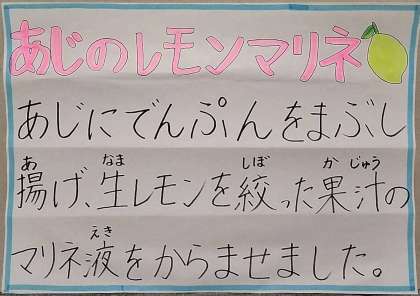 あじのレモンマリネ
あじにでんぷんをまぶし
揚げ、生レモンを絞った果汁の
マリネ液をからませました。